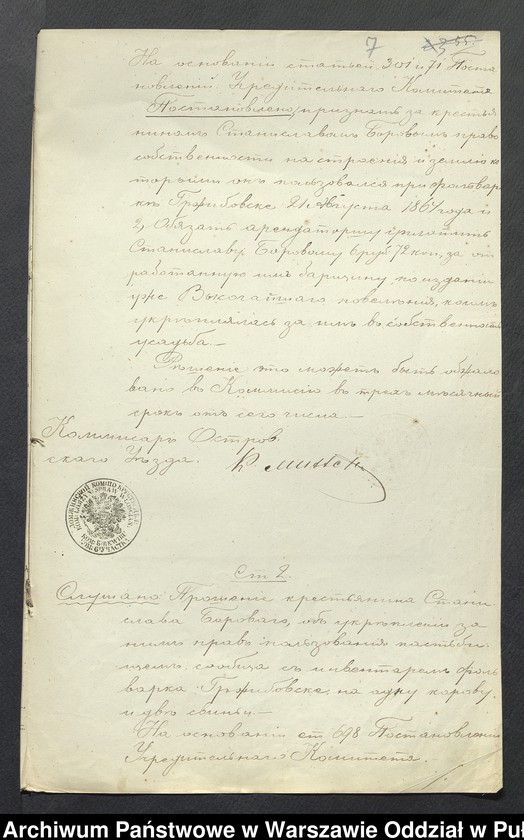 7
На основаніи статьей 301 и 71 Поста
новленій Учредительнаго Комитета
Постановлено, признать за крестья
ниномъ Станиславомъ Боровымъ право
собственности на строенія и землю ко
торыми онъ пользовался при фольвар
кѣ Гржибовске 21 Августа 186 года и
2, Обязать арендаторшу уплатить
Станиславу Боровому 6 руб 72 коп, за от
работанную имъ барщину, по изданіи
уже Высочайшаго повелѣнія, коимъ
укрѣплялась за имъ въ собственность
усадьба.—
Рѣшеніе это можетъ быть обжало
вано въ Коммисію въ трех мѣсячный
срокъ отъ сего числа.—
Коммисаръ Остров
скаго Уѣзда.
Ст 2.
Слушано Прошеніе крестьянина Стани
слава Бороваго, объ укрѣпленіи за
нимъ право пользованія пастби
щемъ сообща съ инвентаремъ фоль
варка Гржибовске, на одну корову,
и двѣ свиньи.—
На основаніи ст 98 Постановленія
Учредительнаго Комитета.
Archiwum Państwowe w Warszawie Oddział w Puł